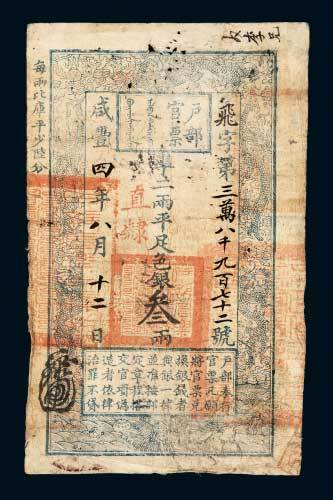 戶部
官票
飛字第三萬八千九百七十二號
準二兩平足色銀叁兩
直隸
咸豐四年八月十二日
每兩比庫平少陸分
戶部奏行
官票凡願
將官票兌
換銀錢者
與銀一律
並准按部
定章程搭
交官項偽
造者依律
治罪不貸